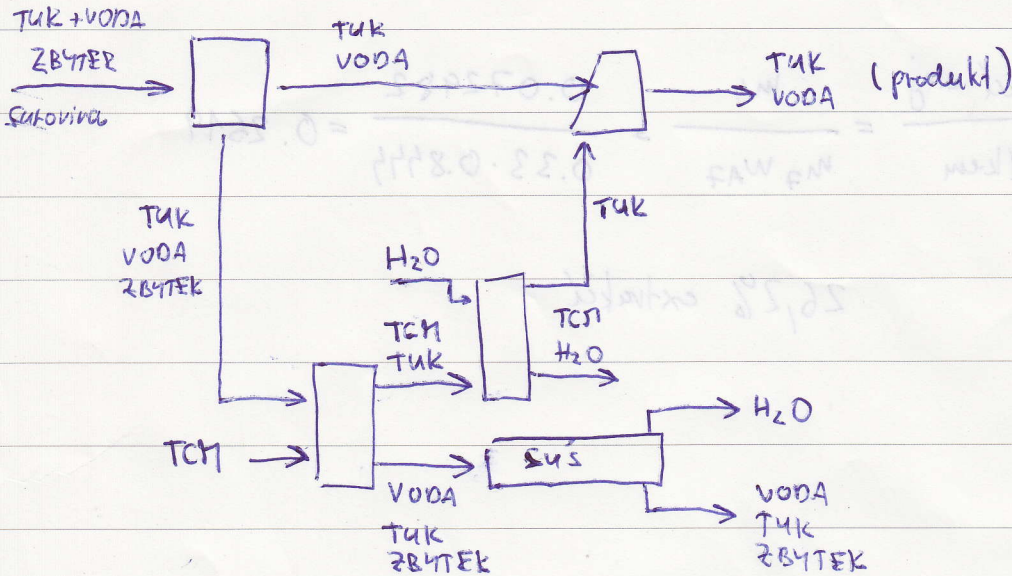 TUK + VODA
ZBYTEK
Surovina
TUK
VODA
TUK
VODA
(produkt)
TUK
VODA
ZBYTEK
TUK
H₂O
TCM
TUK
TCM
H₂O
TCM
SUŠ
H₂O
VODA
TUK
ZBYTEK
VODA
TUK
ZBYTEK